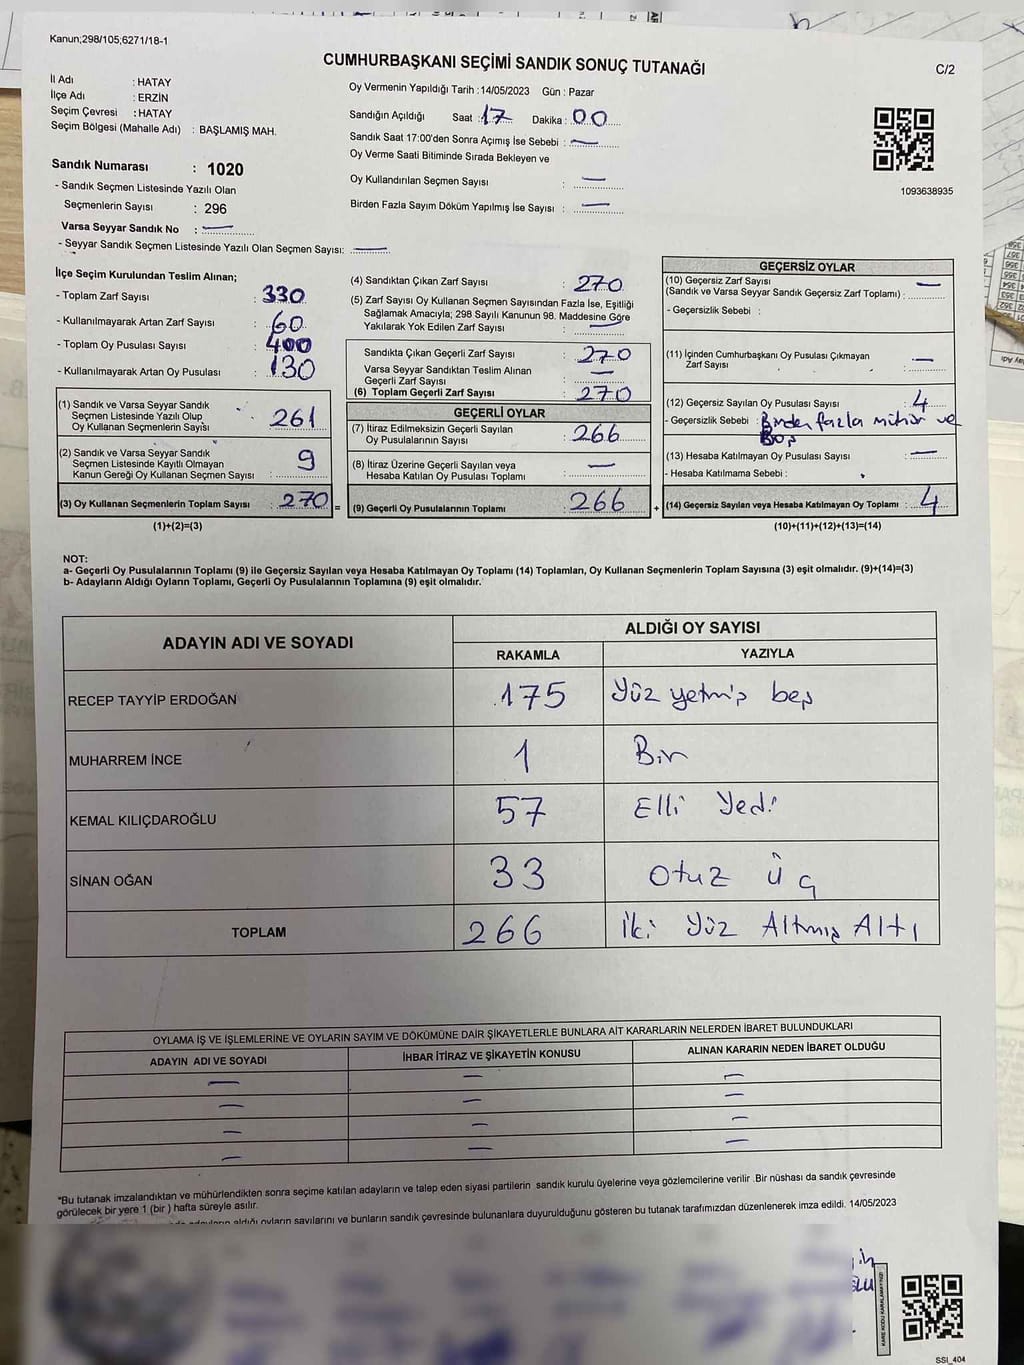 Kanun;298/105,6271/18-1
CUMHURBAŞKANI SEÇİMİ SANDIK SONUÇ TUTANAĞI
C/2
İl Adı : HATAY
İlçe Adı : ERZİN
Seçim Çevresi : HATAY
Seçim Bölgesi (Mahalle Adı) : BAŞLAMIŞ MAH.
Sandık Numarası : 1020
- Sandık Seçmen Listesinde Yazılı Olan
Seçmenlerin Sayısı : 296
Varsa Seyyar Sandık No : —
- Seyyar Sandık Seçmen Listesinde Yazılı Olan Seçmen Sayısı: —
Oy Vermenin Yapıldığı Tarih :14/05/2023 Gün : Pazar
Sandığın Açıldığı Saat : 17 Dakika : 00
Sandık Saat 17:00'den Sonra Açımış İse Sebebi : —
Oy Verme Saati Bitiminde Sırada Bekleyen ve
Oy Kullandırılan Seçmen Sayısı : —
Birden Fazla Sayım Döküm Yapılmış İse Sayısı : —
1093638935
İlçe Seçim Kurulundan Teslim Alınan;
- Toplam Zarf Sayısı : 330
- Kullanılmayarak Artan Zarf Sayısı : 60
- Toplam Oy Pusulası Sayısı : 400
- Kullanılmayarak Artan Oy Pusulası : 130
(1) Sandık ve Varsa Seyyar Sandık
Seçmen Listesinde Yazılı Olup
Oy Kullanan Seçmenlerin Sayısı : 261
(2) Sandık ve Varsa Seyyar Sandık
Seçmen Listesinde Kayıtlı Olmayan
Kanun Gereği Oy Kullanan Seçmen Sayısı : 9
(3) Oy Kullanan Seçmenlerin Toplam Sayısı : 270 =
(1)+(2)=(3)
(4) Sandıktan Çıkan Zarf Sayısı : 270
(5) Zarf Sayısı Oy Kullanan Seçmen Sayısından Fazla İse, Eşitliği
Sağlamak Amacıyla; 298 Sayılı Kanunun 98. Maddesine Göre
Yakılarak Yok Edilen Zarf Sayısı : —
Sandıkta Çıkan Geçerli Zarf Sayısı : 270
Varsa Seyyar Sandıktan Teslim Alınan
Geçerli Zarf Sayısı : —
(6) Toplam Geçerli Zarf Sayısı : 270
GEÇERLİ OYLAR
(7) İtiraz Edilmeksizin Geçerli Sayılan
Oy Pusulalarının Sayısı : 266
(8) İtiraz Üzerine Geçerli Sayılan veya
Hesaba Katılan Oy Pusulası Toplamı : —
(9) Geçerli Oy Pusulalarının Toplamı : 266 +
GEÇERSİZ OYLAR
(10) Geçersiz Zarf Sayısı
(Sandık ve Varsa Seyyar Sandık Geçersiz Zarf Toplamı) : —
- Geçersizlik Sebebi :
(11) İçinden Cumhurbaşkanı Oy Pusulası Çıkmayan
Zarf Sayısı : —
(12) Geçersiz Sayılan Oy Pusulası Sayısı : 4
- Geçersizlik Sebebi : Birden fazla mühür ve
Boş
(13) Hesaba Katılmayan Oy Pusulası Sayısı : —
- Hesaba Katılmama Sebebi :
(14) Geçersiz Sayılan veya Hesaba Katılmayan Oy Toplamı : 4
(10)+(11)+(12)+(13)=(14)
NOT:
a- Geçerli Oy Pusulalarının Toplamı (9) ile Geçersiz Sayılan veya Hesaba Katılmayan Oy Toplamı (14) Toplamları, Oy Kullanan Seçmenlerin Toplam Sayısına (3) eşit olmalıdır. (9)+(14)=(3)
b- Adayların Aldığı Oyların Toplamı, Geçerli Oy Pusulalarının Toplamına (9) eşit olmalıdır.
ADAYIN ADI VE SOYADI ALDIĞI OY SAYISI
RAKAMLA YAZIYLA
RECEP TAYYİP ERDOĞAN 175 Yüz yetmiş beş
MUHARREM İNCE 1 Bir
KEMAL KILIÇDAROĞLU 57 Elli Yedi
SİNAN OĞAN 33 otuz üç
TOPLAM 266 İki Yüz Altmış Altı
OYLAMA İŞ VE İŞLEMLERİNE VE OYLARIN SAYIM VE DÖKÜMÜNE DAİR ŞİKAYETLERLE BUNLARA AİT KARARLARIN NELERDEN İBARET BULUNDUKLARI
ADAYIN ADI VE SOYADI İHBAR İTİRAZ VE ŞİKAYETİN KONUSU ALINAN KARARIN NEDEN İBARET OLDUĞU
— — —
— — —
— — —
— — —
*Bu tutanak imzalandıktan ve mühürlendikten sonra seçime katılan adayların ve talep eden siyasi partilerin sandık kurulu üyelerine veya gözlemcilerine verilir .Bir nüshası da sandık çevresinde
görülecek bir yere 1 (bir ) hafta süreyle asılır.
aldığı oyların sayılarını ve bunların sandık çevresinde bulunanlara duyurulduğunu gösteren bu tutanak tarafımızdan düzenlenerek imza edildi. 14/05/2023
KARE KODU KARALAMAYINIZ!
SSI_404